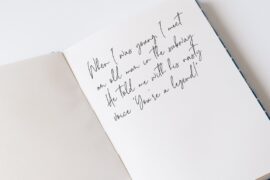 When I was young, I meet
an old man in the subway
He told me with his nasty
voice 'You're a legend!'